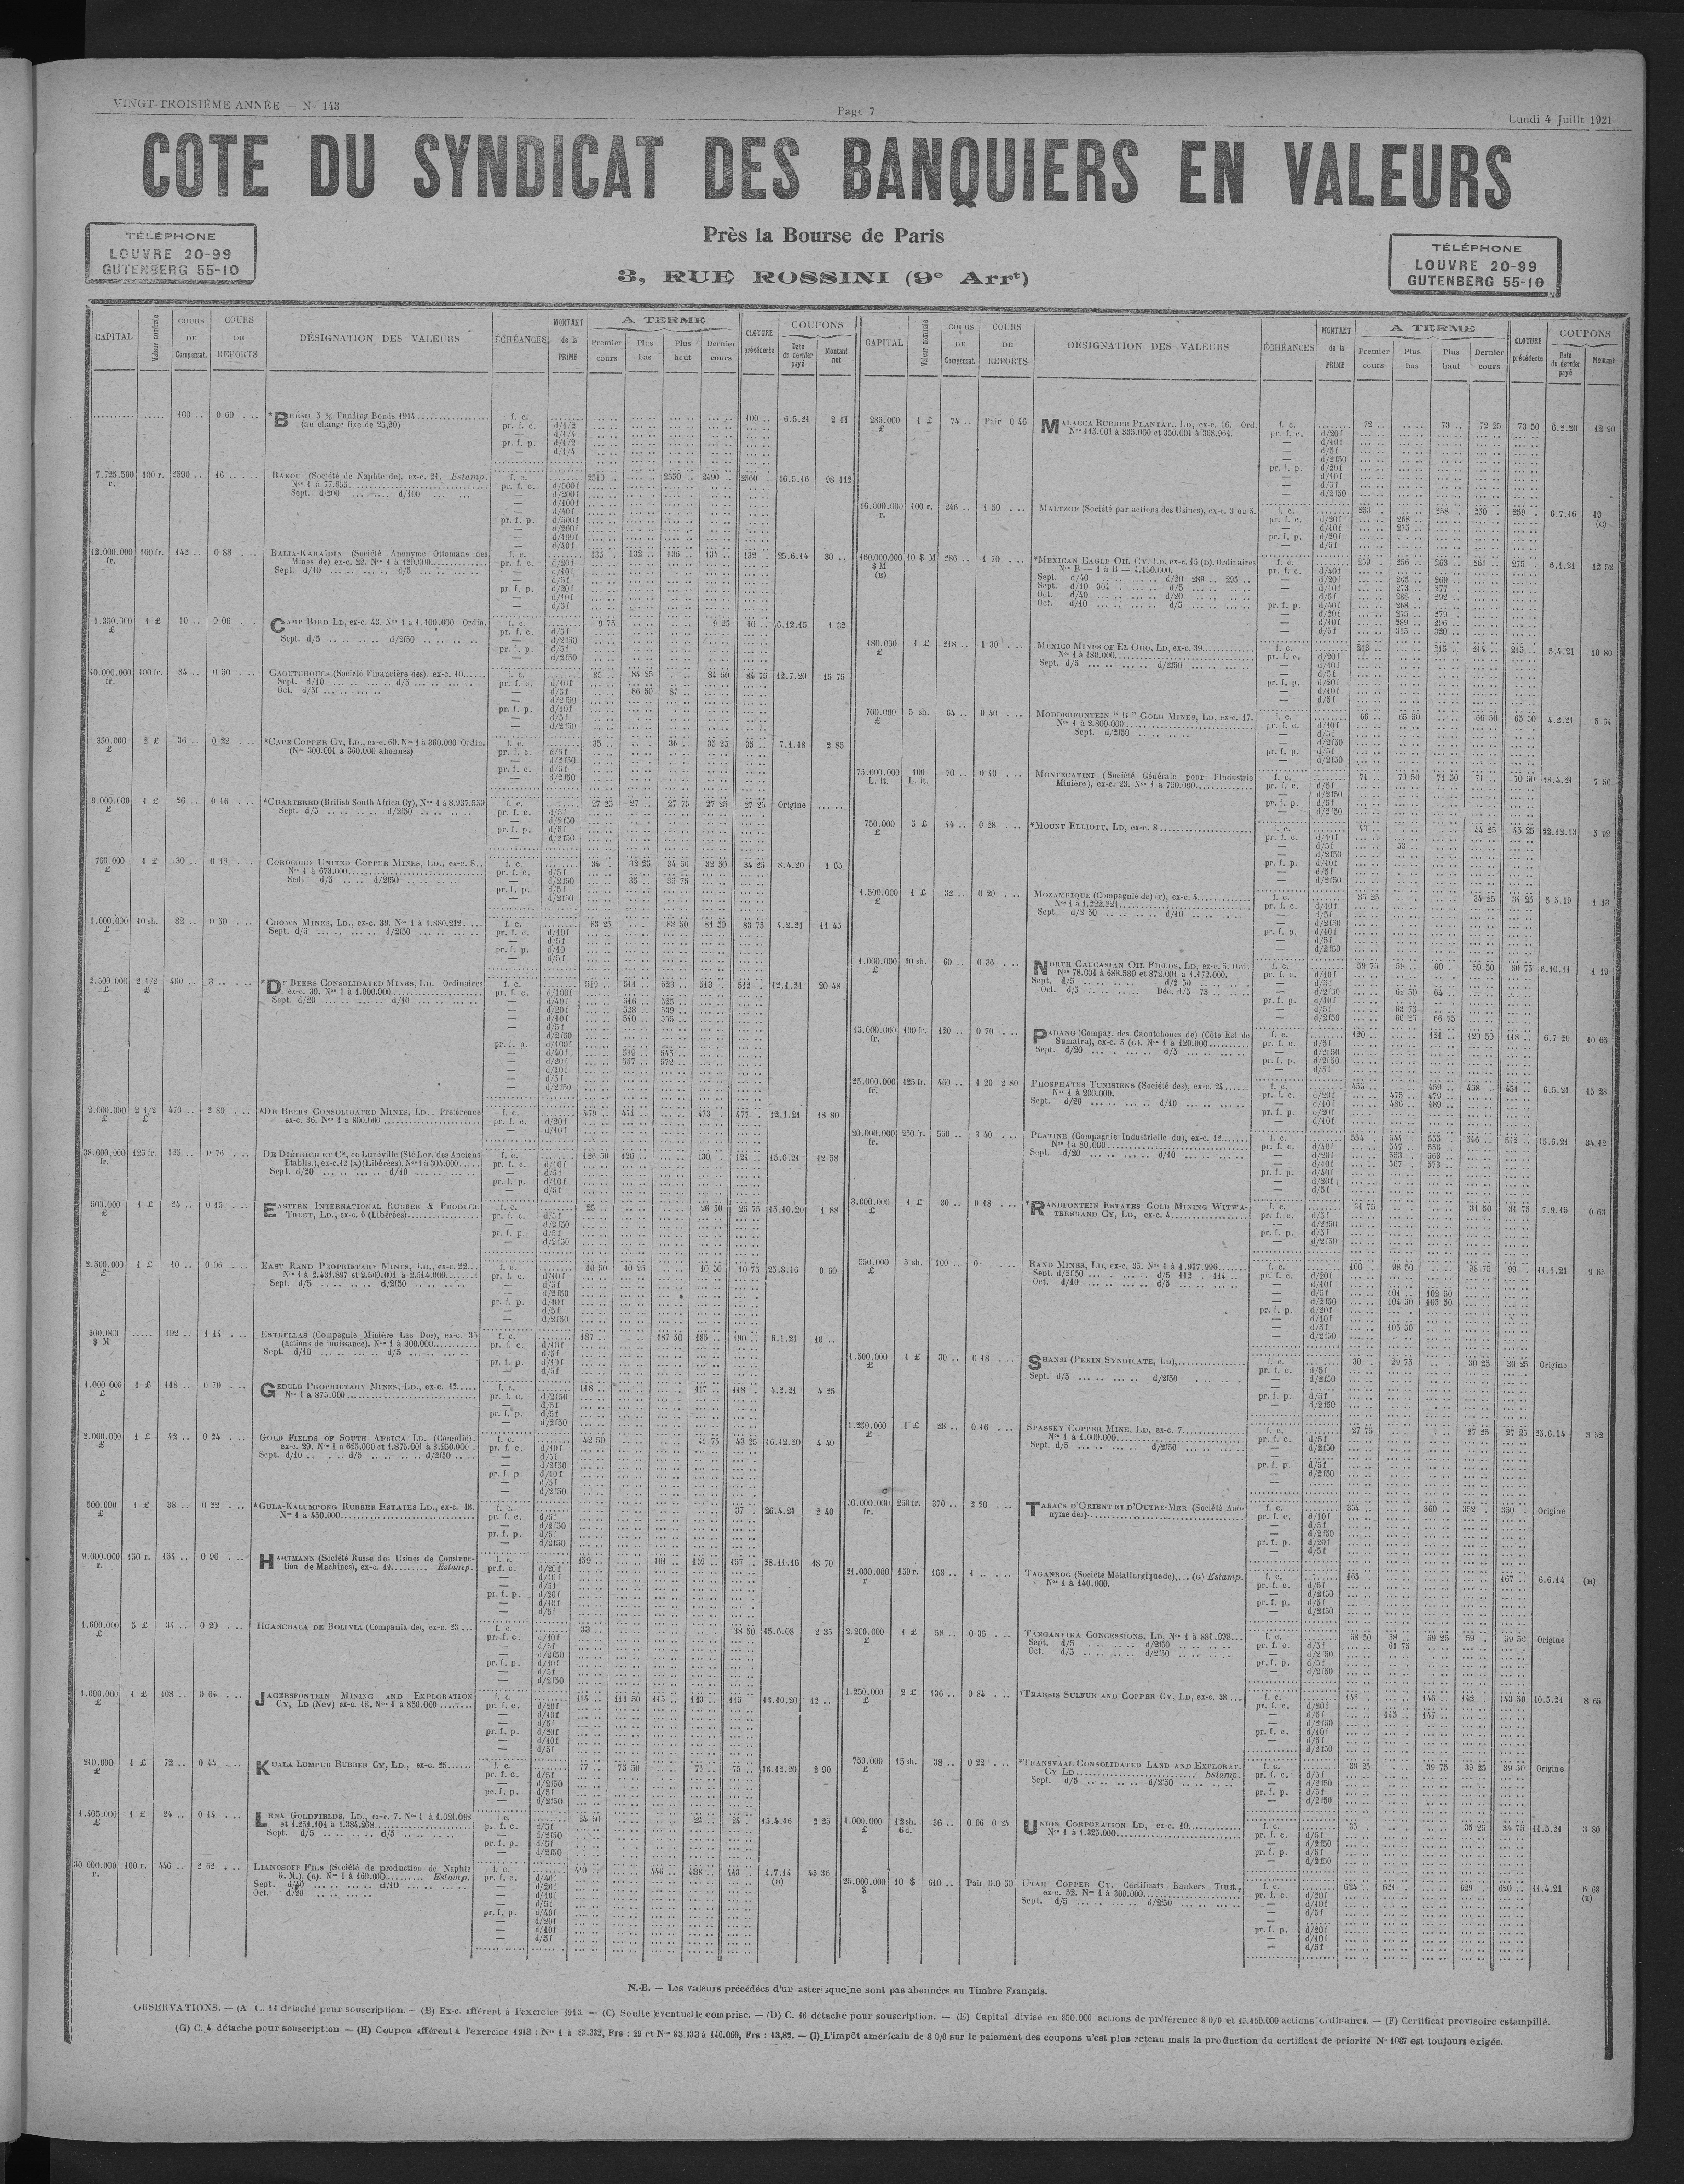 VINGT-TROISIÈME ANNÉE — N° 143
Page 7
Lundi 4 Juillt 1921
COTE DU SYNDICAT DES BANQUIERS EN VALEURS
Près la Bourse de Paris
3, RUE ROSSINI (9e Arrt)
TÉLÉPHONE
LOUVRE 20-99
GUTENBERG 55-10
TÉLÉPHONE
LOUVRE 20-99
GUTENBERG 55-10
CAPITAL Valeur nominale COURS DE Compensat. COURS DE REPORTS DÉSIGNATION DES VALEURS ÉCHÉANCES MONTANT de la PRIME A TERME Premier cours Plus bas Plus haut Dernier cours CLOTURE précédente COUPONS Date du dernier payé Montant net
400 .. 0 60 *BRÉSIL 5 % Funding Bonds 1914 f. c. 100 .. 6.5.21 2 11
(au change fixe de 25,20)
7.725.500 r. 100 r. 2590 .. 16 .. BAKOU (Société de Naphte de), ex-c. 21. Estamp. f. c. 2510 .. 2530 .. 2490 .. 2560 . 16.5.16 98 112
N°s 1 à 77.855
Sept. d/200 d/100
12.000.000 fr. 100 fr. 142 .. 0 88 BALIA-KARAÏDIN (Société Anonyme Ottomane des f. c. 135 . 132 .. 136 .. 134 .. 132 .. 25.6.14 30 ..
Mines de) ex-c. 22. N°s 1 à 120.000
Sept. d/10 d/5
1.350.000 £ 1 £ 10 .. 0 06 CAMP BIRD LD, ex-c. 43. N°s 1 à 1.100.000 Ordin. f. c. 9 75 9 25 10 .. 6.12.15 1 32
Sept. d/5 d/2f50
40.000.000 fr. 100 fr. 84 .. 0 50 CAOUTCHOUCS (Société Financière des). ex-c. 10 f. c. 85 .. 84 25 84 50 84 75 12.7.20 15 75
Sept. d/10 d/5
Oct. d/5f 86 50 87 ..
350.000 £ 2 £ 36 .. 0 22 *CAPE COPPER CY, LD., ex-c. 60. N°s 1 à 360.000 Ordin. f. c. 35 .. 36 .. 35 25 35 .. 7.1.18 2 85
(N°s 300.001 à 360.000 abonnés)
9.000.000 £ 1 £ 26 .. 0 16 *CHARTERED (British South Africa Cy), N°s 1 à 8.937.559 f. c. 27 25 27 .. 27 75 27 25 27 25 Origine
Sept. d/5 d/2f50
700.000 £ 1 £ 30 .. 0 18 COROCORO UNITED COPPER MINES, LD., ex-c. 8 f. c. 34 . 32 25 34 50 32 50 34 25 8.4.20 1 65
N°s 1 à 673.000
Sedt d/5 d/2f50 35 .. 35 75
1.000.000 £ 10 sh. 82 .. 0 50 CROWN MINES, LD., ex-c. 39. N°s 1 à 1.880.212 f. c. 83 25 83 50 81 50 83 75 4.2.21 11 45
Sept. d/5 d/2f50
2.500.000 £ 2 1/2 £ 490 .. 3 .. *DE BEERS CONSOLIDATED MINES, LD. Ordinaires f. c. 519 .. 511 .. 523 .. 513 . 512 .. 12.1.21 20 48
ex-c. 30. N°s 1 à 1.000.000
Sept. d/20 d/10
d/40f 516 .. 525 ..
d/20f 528 .. 539 ..
d/10f 540 .. 555 ..
d/40f 539 .. 545 ..
d/20f 557 .. 572 ..
2.000.000 £ 2 1/2 £ 470 .. 2 80 *DE BEERS CONSOLIDATED MINES, LD.. Préférence f. c. 479 .. 471 .. 473 .. 477 .. 12.1.21 18 80
ex-c. 36. N°s 1 à 800.000
38.000.000 fr. 125 fr. 125 .. 0 76 DE DIÉTRICH ET Cie, de Lunéville (Sté Lor. des Anciens f. c. 126 50 126 .. 130 .. 124 .. 15.6.21 12 58
Etablis.), ex-c. 12 (A) (Libérées). N°s 1 à 304.000
Sept. d/20 d/10
500.000 £ 1 £ 24 .. 0 15 EASTERN INTERNATIONAL RUBBER & PRODUCE f. c. 25 .. 26 50 25 75 15.10.20 1 88
TRUST, LD., ex-c. 6 (Libérées)
2.500.000 £ 1 £ 10 .. 0 06 EAST RAND PROPRIETARY MINES, LD., ex-c. 22 f. c. 10 50 10 25 10 50 10 75 25.8.16 0 60
N°s 1 à 2.431.897 et 2.509.001 à 2.514.000
Sept. d/5 d/2f50
300.000 $ M 192 .. 1 14 ESTRELLAS (Compagnie Minière Las Dos), ex-c. 35 f. c. 187 .. 187 50 186 .. 190 .. 6.1.21 10 ..
(actions de jouissance). N°s 1 à 300.000
Sept. d/10 d/5
1.000.000 £ 1 £ 118 .. 0 70 GEDULD PROPRIETARY MINES, LD., ex-c. 12 f. c. 118 .. 117 .. 118 . 4.2.21 4 25
N°s 1 à 875.000
2.000.000 £ 1 £ 42 .. 0 24 GOLD FIELDS OF SOUTH AFRICA LD. (Consolid). f. c. 42 50 41 75 43 25 16.12.20 4 40
ex-c. 29. N°s 1 à 625.000 et 1.875.001 à 3.250.000
Sept. d/10 d/5 d/2f50
500.000 £ 1 £ 38 .. 0 22 *GULA-KALUMPONG RUBBER ESTATES LD., ex-c. 18. f. c. 37 . 26.4.21 2 40
N°s 1 à 450.000
9.000.000 r. 150 r. 154 .. 0 96 HARTMANN (Société Russe des Usines de Construc- f. c. 159 .. 161 .. 159 .. 157 .. 28.11.16 18 70
tion de Machines), ex-c. 49 Estamp.
1.600.000 £ 5 £ 34 .. 0 20 HUANCHACA DE BOLIVIA (Compania de), ex-c. 23 f. c. 33 38 50 15.6.08 2 35
1.000.000 £ 1 £ 108 .. 0 64 JAGERSFONTEIN MINING AND EXPLORATION f. c. 114 .. 111 50 115 .. 113 .. 115 13.10.20 12 ..
CY, LD (New) ex-c. 18. N°s 1 à 850.000
210.000 £ 1 £ 72 .. 0 44 KUALA LUMPUR RUBBER CY, LD., ex-c. 25 f. c. 77 .. 75 50 76 .. 75 .. 16.12.20 2 90
1.405.000 £ 1 £ 24 .. 0 14 LENA GOLDFIELDS, LD., ex-c. 7. N°s 1 à 1.021.098 f.c. 24 50 24 .. 24 . 15.4.16 2 25
et 1.251.101 à 1.384.268
Sept. d/5 d/5
30 000.000 r. 100 r. 446 .. 2 62 LIANOSOFF FILS (Société de production de Naphte f. c. 440 .. 446 .. 438 .. 443 .. 4.7.14 (B) 45 36
G. M.), (B). N°s 1 à 160.000 Estamp.
Sept. d/40 d/10
Oct. d/20
CAPITAL Valeur nominale COURS DE Compensat. COURS DE REPORTS DÉSIGNATION DES VALEURS ÉCHÉANCES MONTANT de la PRIME A TERME Premier cours Plus bas Plus haut Dernier cours CLOTURE précédente COUPONS Date du dernier payé Montant
285.000 £ 1 £ 74 .. Pair 0 46 MALACCA RUBBER PLANTAT., LD, ex-c. 16. Ord. f. c. 72 .. 73 .. 72 25 73 50 6.2.20 12 90
N°s 115.001 à 335.000 et 350.001 à 368.964.
16.000.000 r. 100 r. 246 .. 1 50 MALTZOF (Société par actions des Usines), ex-c. 3 ou 5. f. c. 253 .. 258 .. 250 .. 259 . 6.7.16 19 (C)
d/20f 268 ..
d/10f 275 ..
160.000.000 $ M 10 $ M 286 .. 1 70 *MEXICAN EAGLE OIL CY, LD, ex-c. 15 (D). Ordinaires f. c. 259 .. 256 .. 263 .. 261 .. 275 .. 6.1.21 12 52
N°s B — 1 à B — 4.150.000.
Sept. d/40 d/20 289 .. 295 ..
Sept. d/10 304 d/5
Oct. d/40 d/20
Oct. d/10 d/5
d/20f 265 .. 269 ..
d/10f 273 .. 277 ..
d/5f 288 .. 292 ..
d/40f 268 ..
d/20f 275 .. 279 ..
d/10f 289 .. 296 ..
d/5f 315 .. 320 ..
180.000 £ 1 £ 218 .. 1 30 MEXICO MINES OF EL ORO, LD, ex-c. 39 f. c. 213 .. 215 .. 214 .. 215 .. 5.4.21 10 80
N°s 1 à 180.000
Sept. d/5 d/2f50
700.000 £ 5 sh. 64 .. 0 40 MODDERFONTEIN “ B ” GOLD MINES, LD, ex-c. 17. f. c. 66 .. 65 50 66 50 65 50 4.2.21 5 64
N°s 1 à 2.800.000
Sept. d/2f50
75.000.000 L. it. 100 L. it. 70 .. 0 40 MONTECATINI (Société Générale pour l'Industrie f. c. 71 .. 70 50 71 50 71 .. 70 50 18.4.21 7 50
Minière), ex-c. 23. N°s 1 à 750.000
750.000 £ 5 £ 44 .. 0 28 *MOUNT ELLIOTT, LD, ex-c. 8 f. c. 43 .. 44 25 45 25 22.12.13 5 92
d/5f 53 ..
1.500.000 £ 1 £ 32 .. 0 20 MOZAMBIQUE (Compagnie de) (F), ex-c. 4 f. c. 35 25 34 25 34 25 5.5.19 1 13
N°s 1 à 1.222.221
Sept. d/2 50 d/10
1.000.000 £ 10 sh. 60 .. 0 36 NORTH CAUCASIAN OIL FIELDS, LD, ex-c. 5. Ord. f. c. 59 75 59 .. 60 . 59 50 60 75 6.10.11 1 19
N°s 78.001 à 688.580 et 872.001 à 1.172.000.
Sept. d/5 d/2 50
Oct. d/5 Déc. d/5 75
d/2f50 62 50 64 ..
d/5f 63 75
d/2f50 66 25 66 75
15.000.000 fr. 100 fr. 120 .. 0 70 PADANG (Compag. des Caoutchoucs de) (Côte Est de f. c. 120 .. 121 .. 120 50 118 .. 6.7 20 10 65
Sumatra), ex-c. 5 (G). N°s 1 à 120.000
Sept. d/20 d/5
25.000.000 fr. 125 fr. 460 .. 1 20 2 80 PHOSPHATES TUNISIENS (Société des), ex-c. 24 f. c. 455 .. 459 .. 458 .. 451 .. 6.5.21 15 28
N°s 1 à 200.000.
Sept. d/20 d/10
d/20f 475 .. 479 ..
d/10f 486 .. 489 ..
20.000.000 fr. 250 fr. 550 .. 3 40 PLATINE (Compagnie Industrielle du), ex-c. 12 f. c. 554 . 544 .. 555 .. 546 .. 542 .. 15.6.21 34.12
N°s 1 à 80.000
Sept. d/20 d/10
d/40f 547 .. 556 ..
d/20f 553 .. 563 ..
d/10f 567 . 573 ..
3.000.000 £ 1 £ 30 .. 0 18 *RANDFONTEIN ESTATES GOLD MINING WITWA- f. c. 31 75 31 50 31 75 7.9.15 0 63
TERSRAND CY, LD, ex-c. 4
550.000 £ 5 sh. 100 .. 0 RAND MINES, LD, ex-c. 35. N°s 1 à 1.947.996 f. c. 100 . 98 50 98 75 99 .. 11.1.21 9 65
Sept. d/2f50 d/5 112 . 114 ..
Oct. d/10 d/5
d/5f 101 .. 102 50
d/2f50 104 50 105 50
d/5f 105 50
1.500.000 £ 1 £ 30 .. 0 18 SHANSI (PEKIN SYNDICATE, LD), f. c. 30 . 29 75 30 25 30 25 Origine
Sept. d/5 d/2f50
1.250.000 £ 1 £ 28 .. 0 16 SPASSKY COPPER MINE, LD, ex-c. 7 f. c. 27 75 27 25 27 25 25.6.14 3 52
N°s 1 à 1.000.000
Sept. d/5 d/2f50
50.000.000 fr. 250 fr. 370 .. 2 20 TABACS D'ORIENT ET D'OUTRE-MER (Société Ano- f. c. 354 .. 360 .. 352 .. 350 . Origine
nyme des)
21.000.000 r 150 r. 168 .. 1 .. TAGANROG (Société Métallurgique de), (G) Estamp. f. c. 165 167 .. 6.6.14 (H)
N°s 1 à 140.000.
2.200.000 £ 1 £ 58 .. 0 36 TANGANYIKA CONCESSIONS, LD, N°s 1 à 881.098 f. c. 58 50 58 .. 59 25 59 . 59 50 Origine
Sept. d/5 d/2f50
Oct. d/5 d/2f50
d/5f 61 75
1.250.000 £ 2 £ 136 .. 0 84 *THARSIS SULFUR AND COPPER CY, LD, ex-c. 38 f. c. 145 146 .. 142 . 143 50 10.5.21 8 65
d/5f 145 .. 147
750.000 £ 15 sh. 38 .. 0 22 *TRANSVAAL CONSOLIDATED LAND AND EXPLORAT. f. c. 39 25 39 75 39 25 39 50 Origine
CY LD Estamp.
Sept. d/5 d/2f50
1.000.000 £ 12 sh. 6 d. 36 .. 0 06 0 24 UNION CORPORATION LD, ex-c. 10 f. c. 35 35 25 34 75 11.5.21 3 80
N°s 1 à 1.325.000
25.000.000 $ 10 $ 610 .. Pair D.0 50 UTAH COPPER CY. Certificats Bankers Trust., f. c. 624 .. 621 .. 629 . 620 .. 11.4.21 6 68 (I)
ex-c. 52. N°s 1 à 300.000
Sept. d/5 d/2f50
N.-B. — Les valeurs précédées d'ur astérisque ne sont pas abonnées au Timbre Français.
OBSERVATIONS. — (A C. 11 détaché pour souscription. — (B) Ex-c. afférent à l'exercice 1913. — (C) Soulte éventuelle comprise. — (D) C. 16 détaché pour souscription. — (E) Capital divisé en 850.000 actions de préférence 8 0/0 et 13.150.000 actions ordinaires. — (F) Certificat provisoire estampillé.
(G) C. 4 détaché pour souscription — (H) Coupon afférent à l'exercice 1913 : N°s 1 à 83.332, Frs : 29 et N°s 83.333 à 140.000, Frs : 13,82. — (I) L'impôt américain de 8 0/0 sur le paiement des coupons n'est plus retenu mais la production du certificat de priorité N° 1087 est toujours exigée.